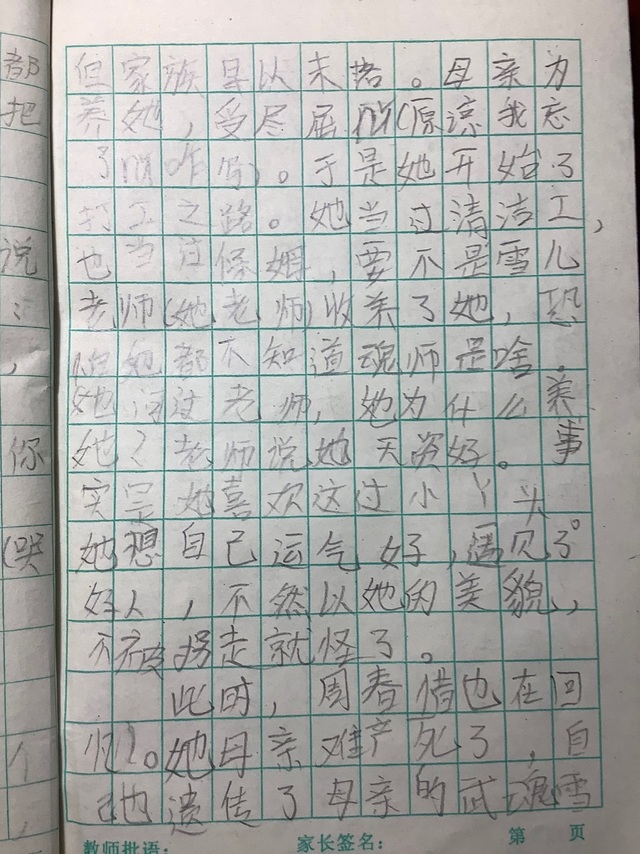 都
把
说
：
，
你
(哭
个
，
但家族早以末落。母亲为
养她，受尽屈(原谅我忘
了咋写)。于是她开始了
打工之路。她当过清洁工，
也当过保姆，要不是雪儿
老师(她老师)收养了她，恐
她都不知道魂师是啥。
她问过老师，她为什么养
她？老师说她天资好。事
实是她喜欢这过小丫头。
她想自己运气好，遇见了
好人，不然以她的美貌，
不被拐走就怪了。
此时，周春惜也在回
忆。她母亲难产死了，自
己也遗传了母亲的武魂雪
教师批语： 家长签名： 第 页